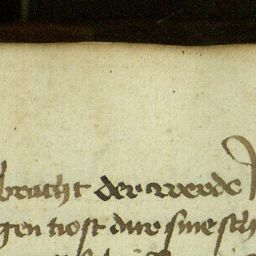 bracht der werde
gen trost dur sine sch